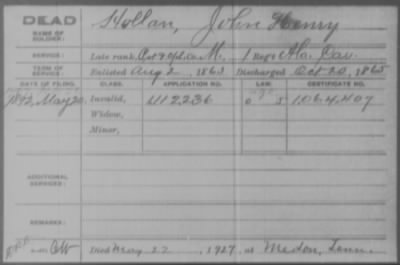 DEAD
NAME OF SOLDIER: Hollan, John Henry
SERVICE: Late rank, Co. M, 1 Reg't Ala. Cav.
TERM OF SERVICE: Enlisted Aug. 2, 1863 Discharged Oct 20, 1865
DATE OF FILING. CLASS. APPLICATION NO. LAW. CERTIFICATE NO.
1892, May 20 Invalid, 1,064,407
Widow,
Minor,
ADDITIONAL SERVICES:
REMARKS:
Died May 22, 1927, at Medon, Tenn.